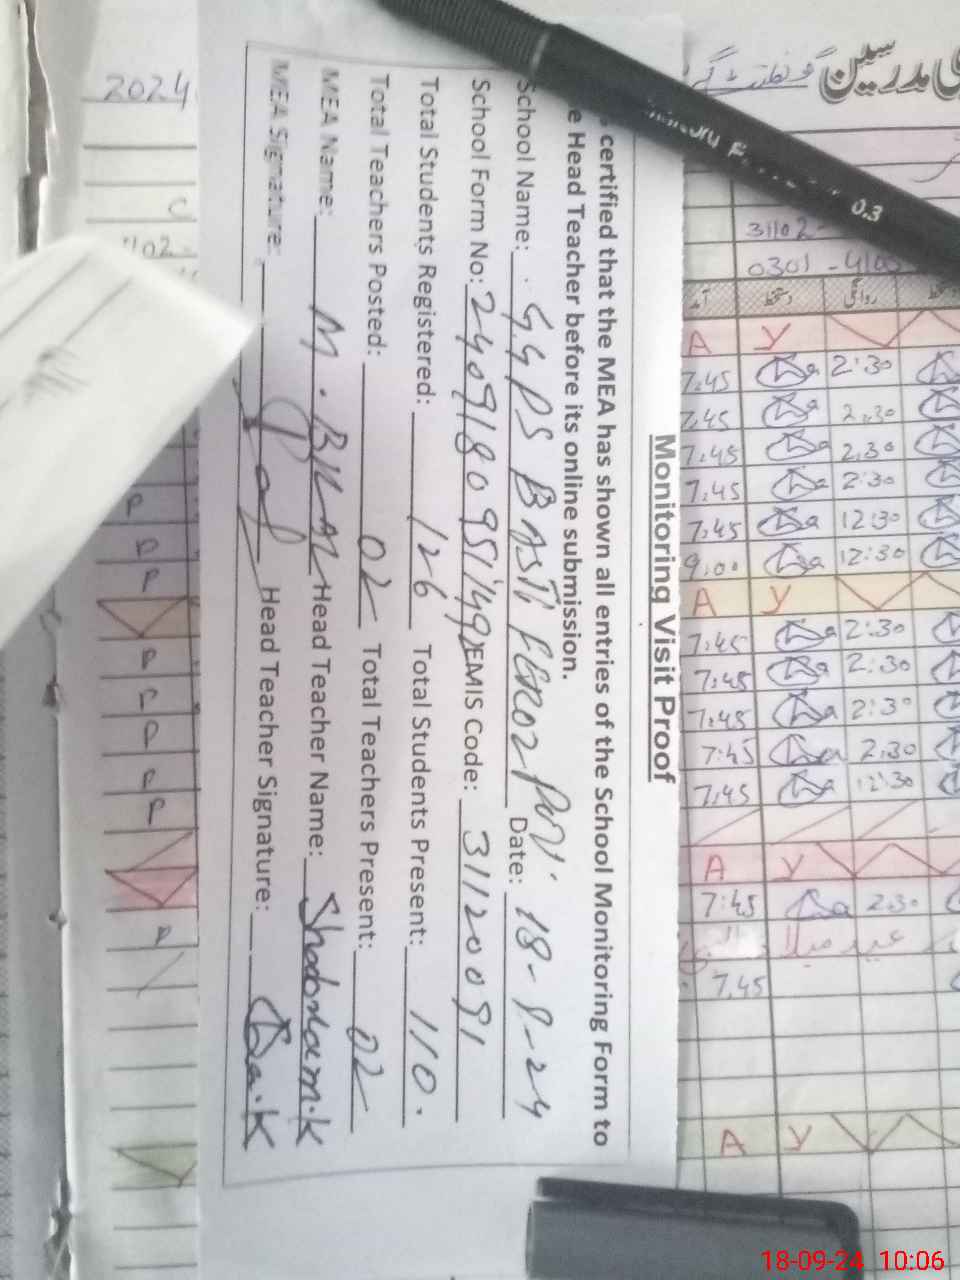 Monitoring Visit Proof
certified that the MEA has shown all entries of the School Monitoring Form to
e Head Teacher before its online submission.
School Name: G.G PS BASTI FEROZ Date: 18-9-24
School Form No: EMIS Code: 31120091
Total Students Registered: 126 Total Students Present: 110.
Total Teachers Posted: 02 Total Teachers Present: 02
MEA Name: M. BILAL Head Teacher Name:
MEA Signature: Head Teacher Signature:
2024
مدرسین
0.3
31102-
0301 -
A y
7:45 2:30
7:45 2:30
7:45 2:30
7:45 2:30
7:45 12:30
9:00 12:30
A y
7:45 2:30
7:45 2:30
7:45 2:30
7:45 2:30
7:45 12:30
A y
7:45 2:30
عید میلاد النبی
7:45
A y
18-09-24 10:06